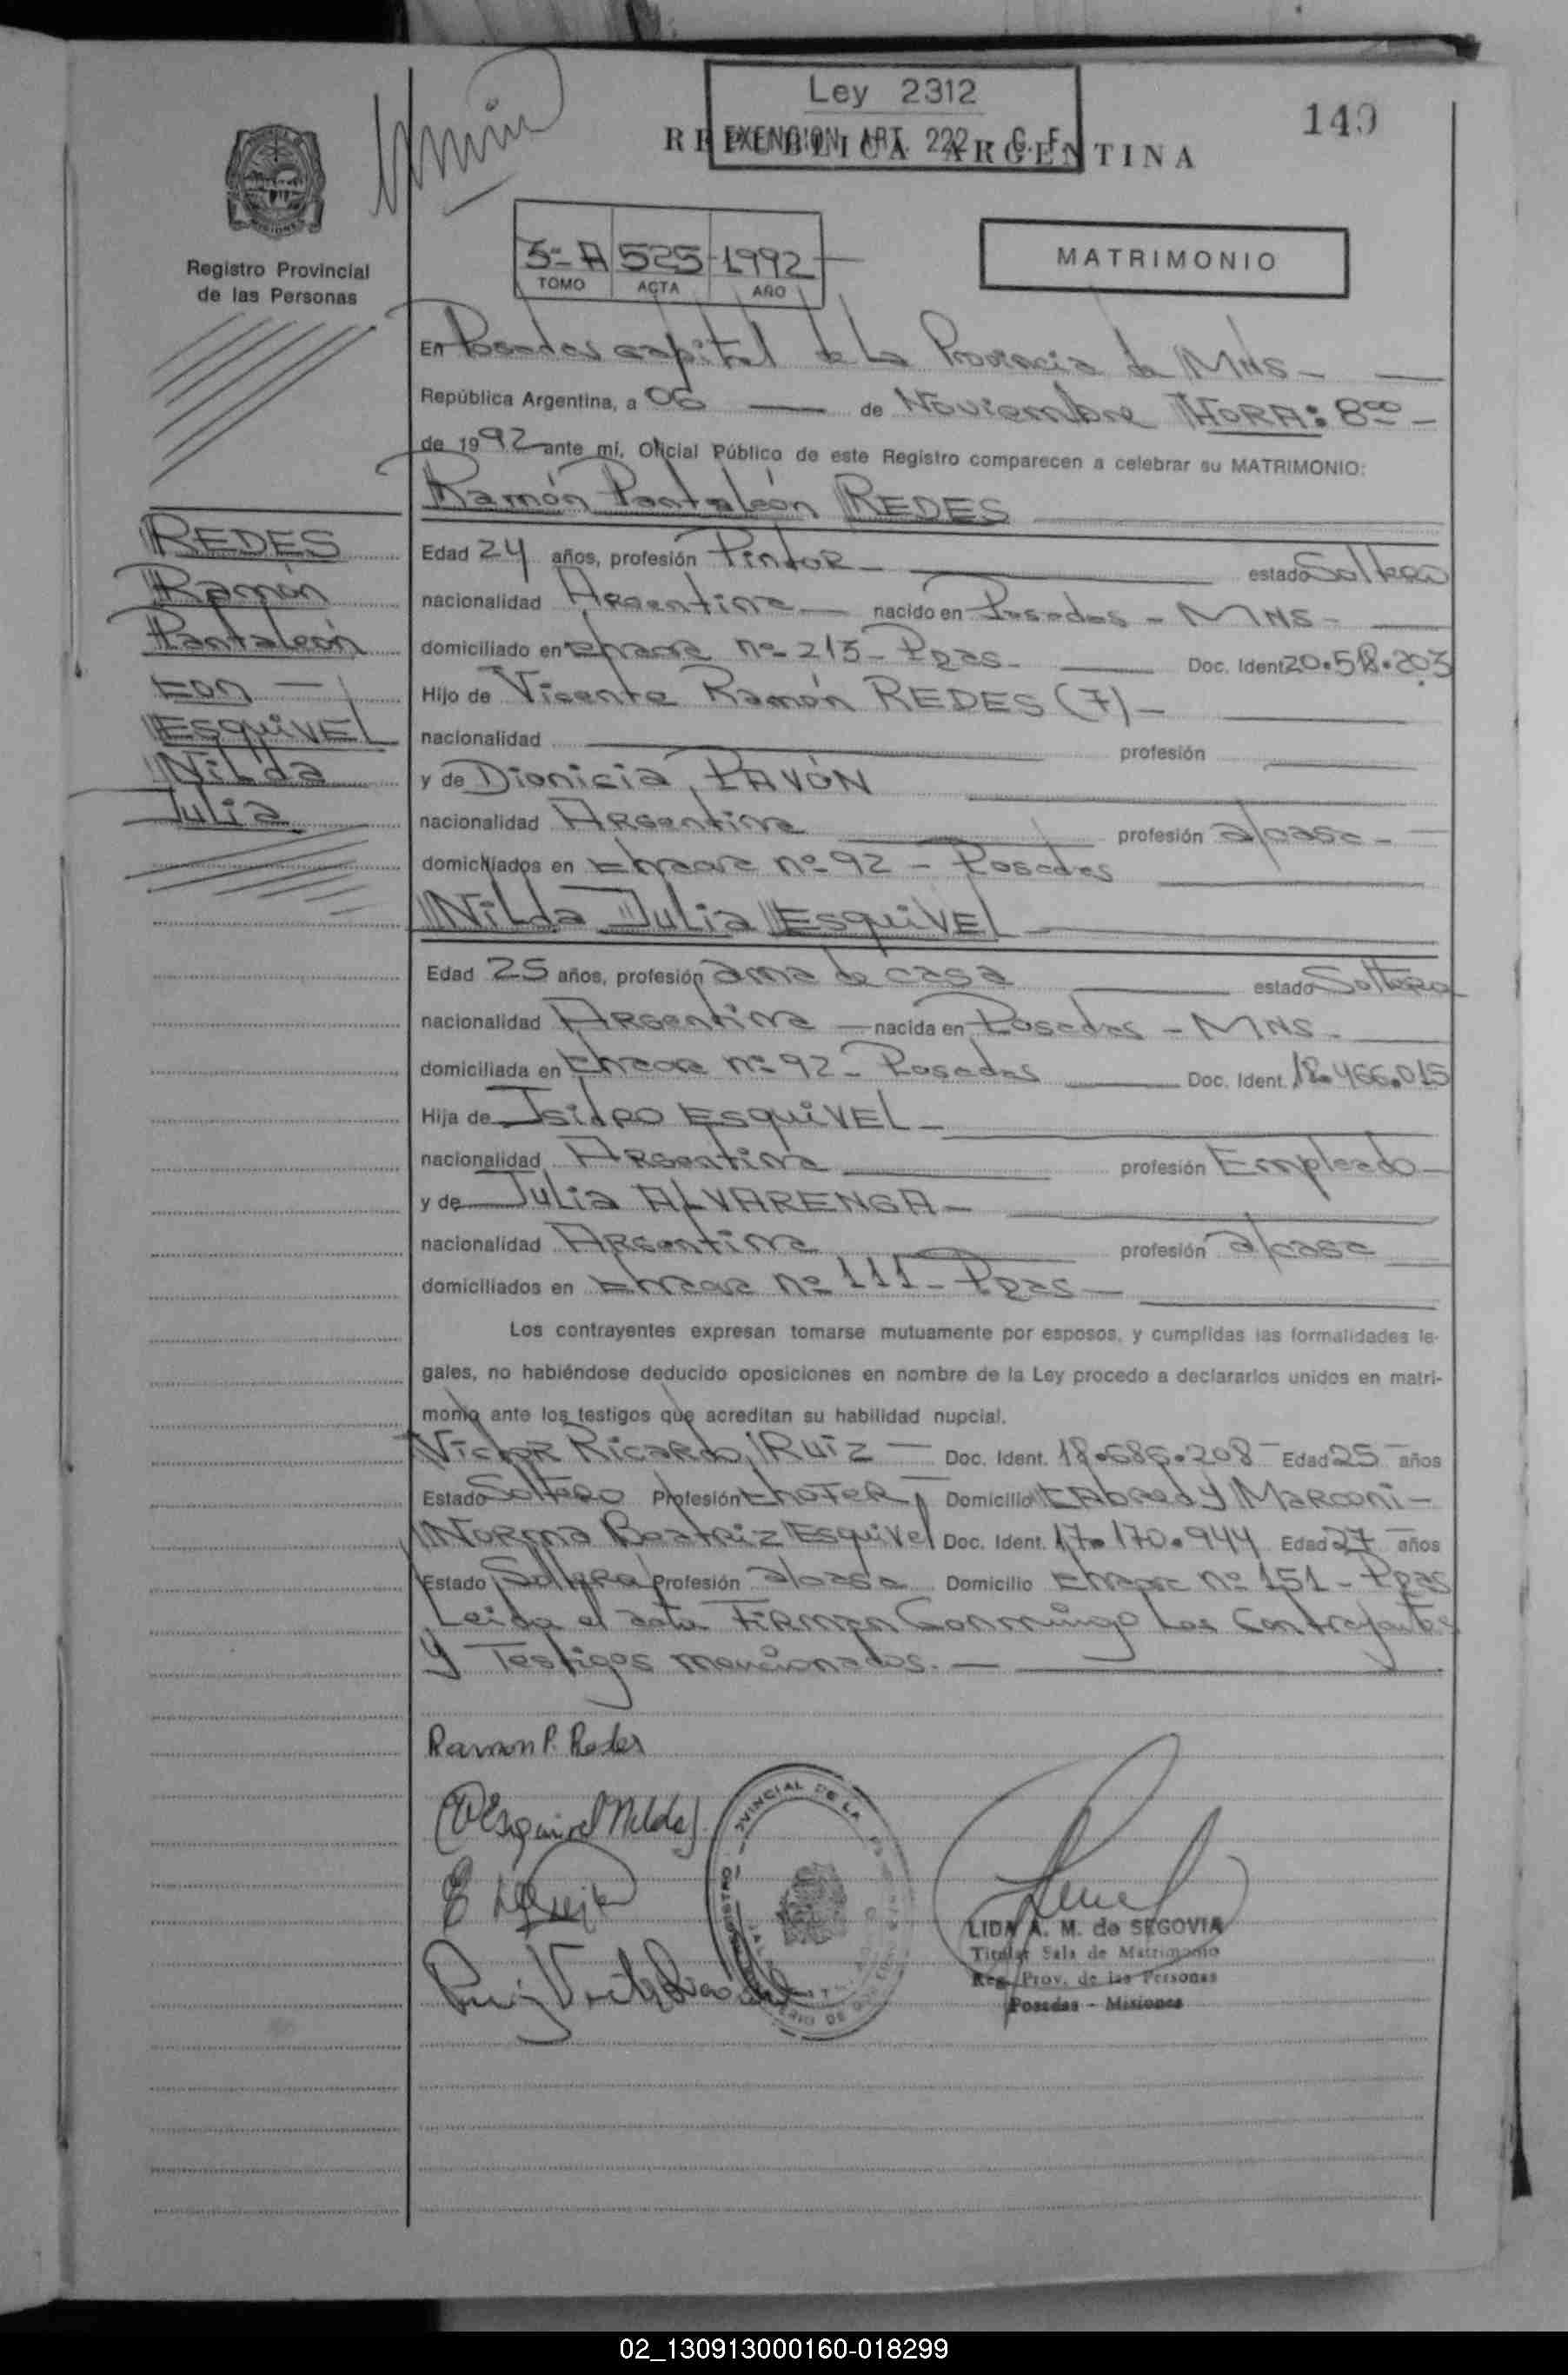 Ley 2312
EXENCION ART. 222 C. F.
REPUBLICA ARGENTINA
149
Registro Provincial
de las Personas
3º A 525 1992
TOMO ACTA AÑO
MATRIMONIO
En Posadas capital de La Provincia de MNS -
República Argentina, a 06 de Noviembre HORA: 8ºº -
de 1992 ante mí, Oficial Público de este Registro comparecen a celebrar su MATRIMONIO:
Ramón Pantaleón REDES
REDES
Ramón
Pantaleón
con
ESQUIVEL
Nilda
Julia
Edad 24 años, profesión Pintor - estado Soltero
nacionalidad Argentina nacido en Posadas - MNS -
domiciliado en nº 215 - Pdas. Doc. Ident. 20.518.203
Hijo de Vicente Ramón REDES (7) -
nacionalidad profesión
y de Dionicia PAVÓN
nacionalidad Argentina profesión a/casa -
domiciliados en nº 92 - Posadas
Nilda Julia EsquiVEl
Edad 25 años, profesión ama de casa estado Soltera
nacionalidad Argentina nacida en Posadas - MNS -
domiciliada en nº 92 - Posadas Doc. Ident. 18.466.015
Hija de Isidro EsquiVEL -
nacionalidad Argentina profesión Empleado
y de Julia ALVARENGA -
nacionalidad Argentina profesión a/casa
domiciliados en nº 111 - Pdas -
Los contrayentes expresan tomarse mutuamente por esposos, y cumplidas las formalidades le-
gales, no habiéndose deducido oposiciones en nombre de la Ley procedo a declararlos unidos en matri-
monio ante los testigos que acreditan su habilidad nupcial.
Victor Ricardo Ruiz - Doc. Ident. 18.686.208 Edad 25 años
Estado Soltero Profesión Chofer Domicilio Cabred y Marconi -
Norma Beatriz Esquivel Doc. Ident. 17.170.944 Edad 27 años
Estado Soltera Profesión a/casa Domicilio nº 151 - Pdas
Leida el acta Firman Conmingo Los Contrayentes
y Testigos mencionados. -
Ramon P. Redes
Esquivel Nilda
LIDA A. M. de SEGOVIA
Titular Sala de Matrimonio
Reg. Prov. de las Personas
Posadas - Misiones
02_130913000160-018299